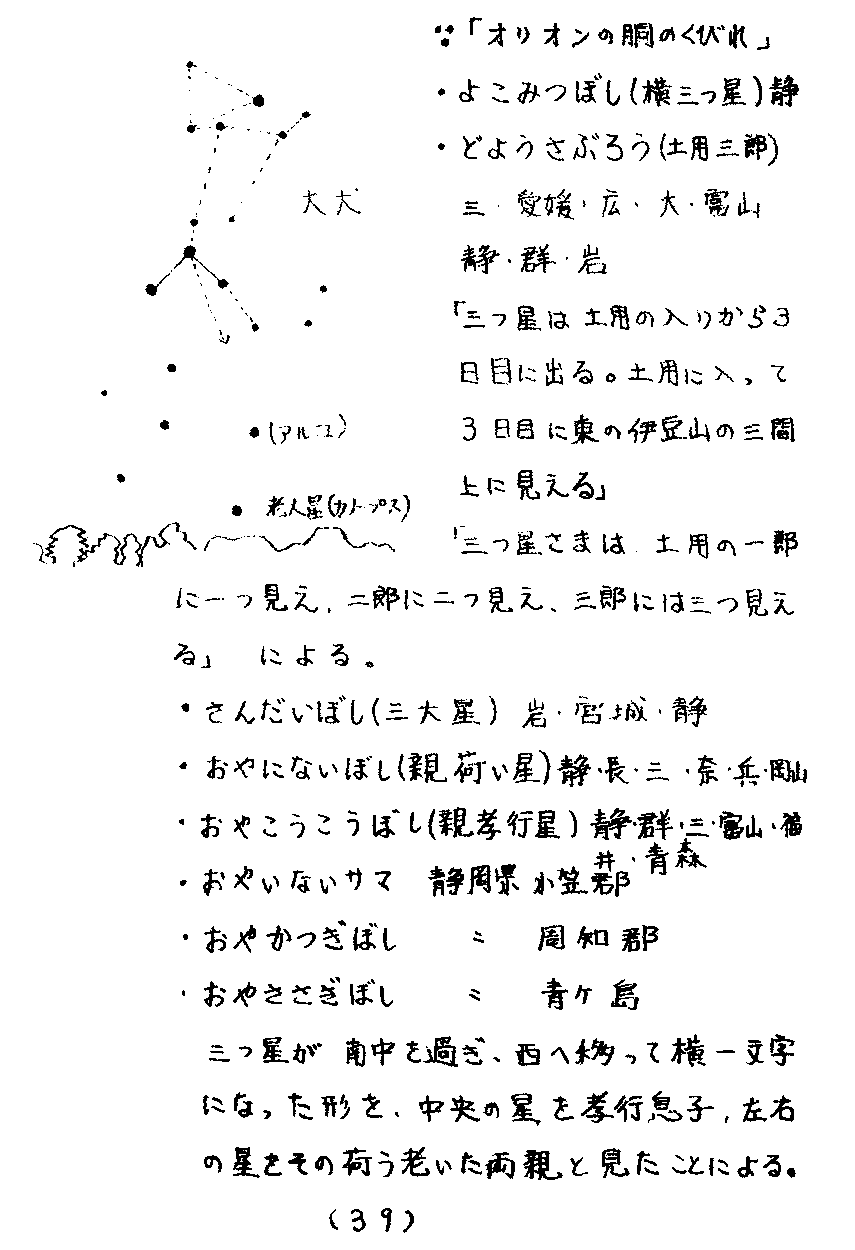 ∵「オリオンの胴のくびれ」
・よこみつぼし(横三つ星)静
・どようさぶろう(土用三郎)
三・愛媛・広・大・富山
静・群・岩
「三つ星は土用の入りから3
日目に出る。土用に入って
3日目に東の伊豆山の三間
上に見える」
「三つ星さまは 土用の一郎
に一つ見え、二郎に二つ見え、三郎には三つ見え
る」 による。
・さんだいぼし(三大星) 岩・宮城・静
・おやにないぼし(親荷い星)静・長・三・奈・兵・岡山
・おやこうこうぼし(親孝行星)静・群・三・富山・福
井・青森
・おやいないサマ 静岡県小笠郡
・おやかつぎぼし 〃 周知郡
・おやささぎぼし 〃 青ケ島
三つ星が 南中を過ぎ、西へ移って横一文字
になった形を、中央の星を孝行息子、左右
の星をその荷う老いた両親と見たことによる。
大犬
(アルゴ)
老人星(カノープス)
(39)